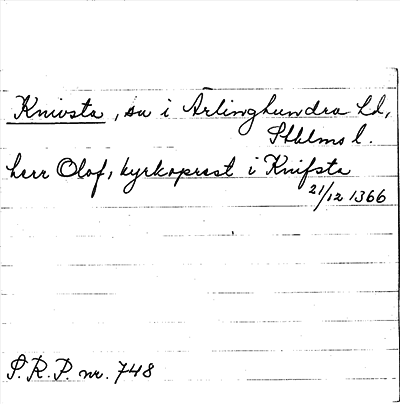 Knivsta, sn i Ärlinghundra hd,
Sthlms l.
herr Olof, kyrkoprest i Knifsta
21/12 1366
S.R.P. nr. 748